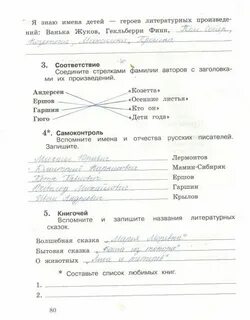 Я знаю имена детей — героев литературных произведений: Ванька Жуков, Гекльберри Финн, Том Сойер,
3. Соответствие
Соедините стрелками фамилии авторов с заголовками их произведений.
Андерсен «Козетта»
Ершов «Осенние листья»
Гаршин «Кто он»
Гюго «Дети года»
4*. Самоконтроль
Вспомните имена и отчества русских писателей. Запишите.
Михаил Юрьевич Лермонтов
Дмитрий Наркисович Мамин-Сибиряк
Пётр Павлович Ершов
Всеволод Михайлович Гаршин
Иван Андреевич Крылов
5. Книгочей
Вспомните и запишите названия литературных сказок.
Волшебная сказка "Марья Моревна"
Бытовая сказка "Каша из топора"
О животных "Лиса и тетерев"
* Составьте список любимых книг.
1.
2.
80